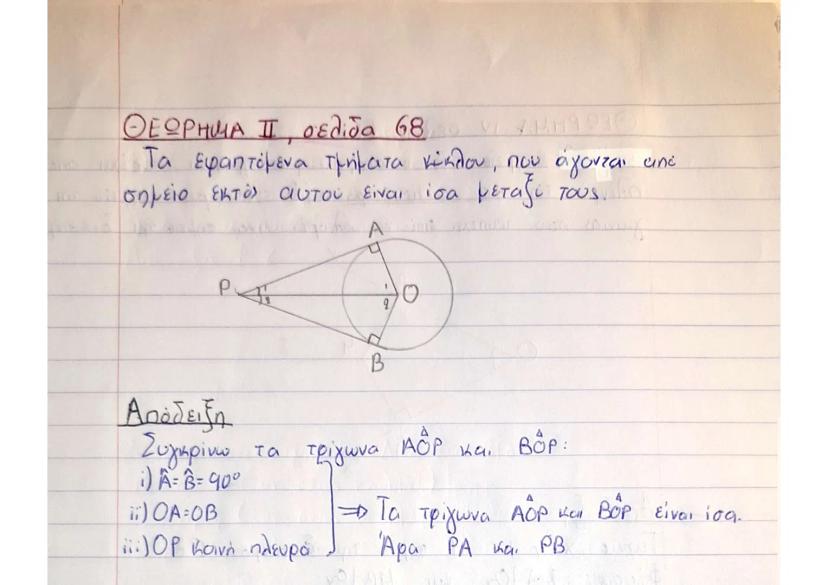 ΘΕΩΡΗΜΑ ΙΙ, σελίδα 68
Τα εφαπτόμενα τμήματα κύκλου, που άγονται από
σημείο εκτός αυτού είναι ίσα μεταξύ τους.
A
P
1
2
1
2
O
B
Απόδειξη
Συγκρίνω τα τρίγωνα AÔP και BÔP:
i) Â=B̂=90°
ii) OA=OB
iii) OP κοινή πλευρά
⇒ Τα τρίγωνα AÔP και BÔP είναι ίσα.
Άρα PA και PB